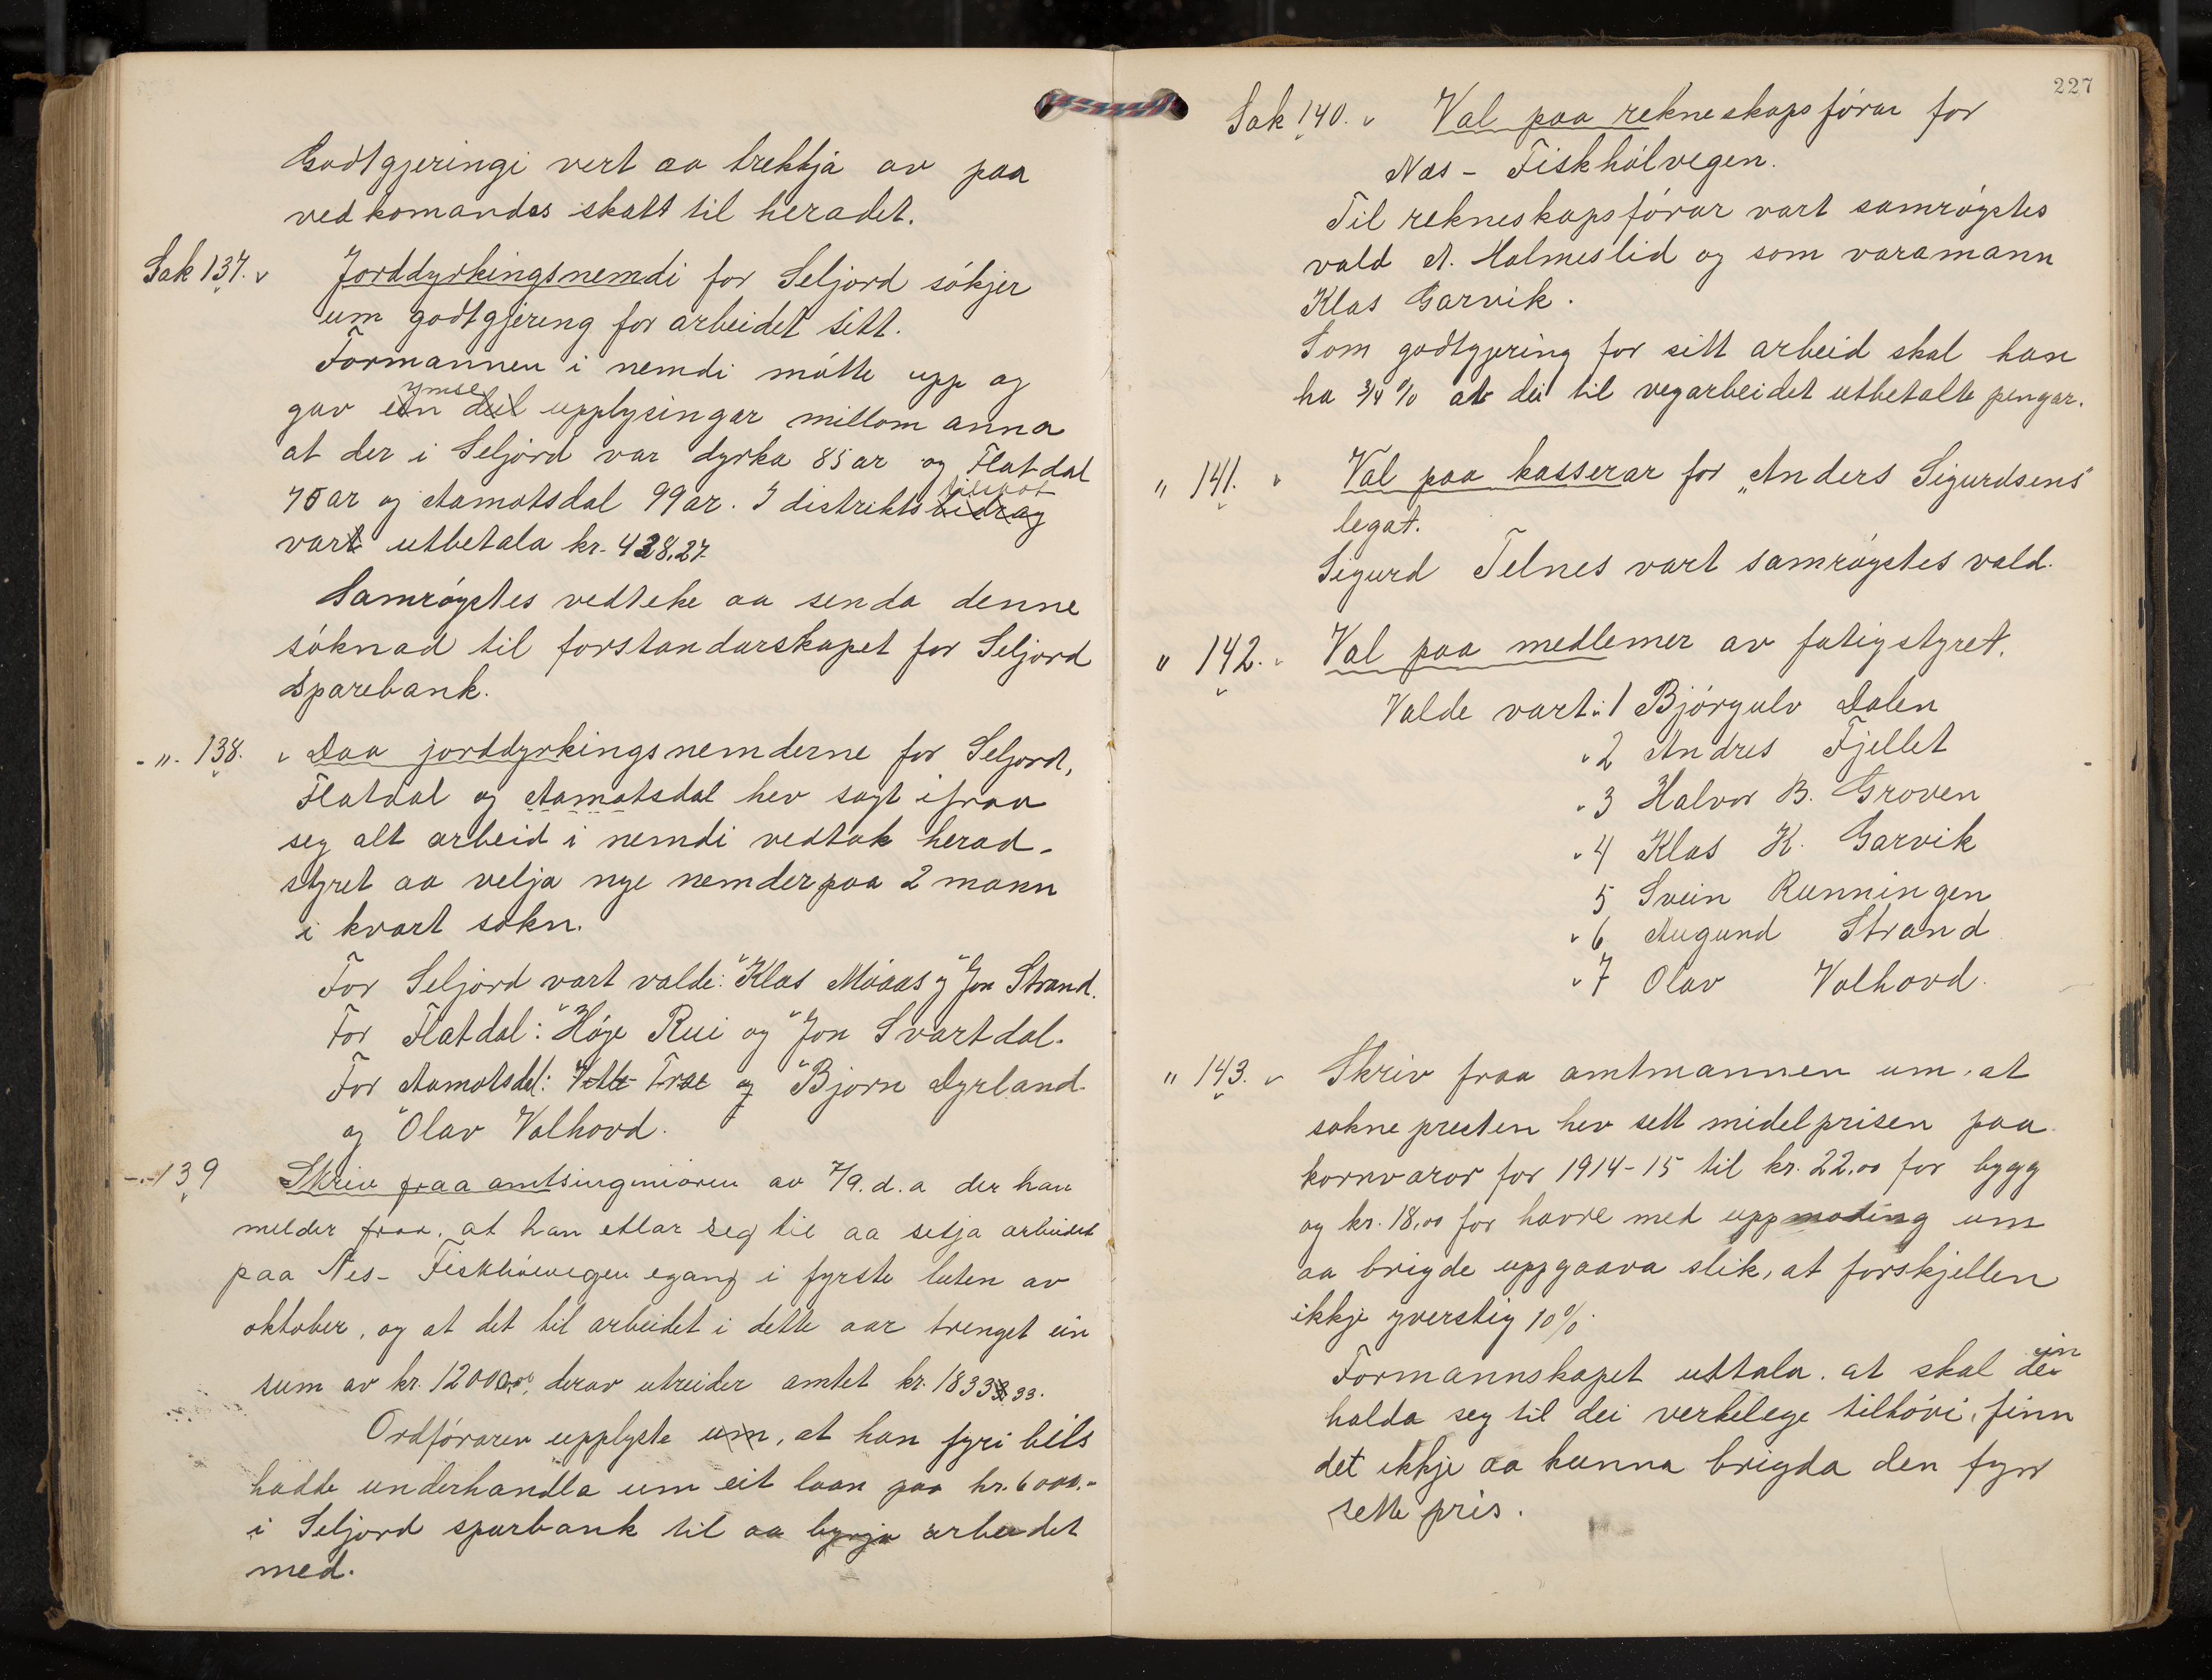 Godtgjeringi vert aa trekkja av paa
vedkomandes skatt til heradet.
Sak 137. Jorddyrkingsnemdi for Seljord sókjer
um godtgjering for arbeidet sitt.
Formannen i nemdi mótte upp og
ymse
gav ein del upplysingar millom anna
at der i Seljord var dyrka 85 ar og Flatdal
75 ar og Aamotsdal 99 ar. I distrikts bidrag
vart utbetala kr. 428.27.
Samróystes vedteke aa senda denne
sóknad til forstandarskapet for Seljord
Sparebank.
-"- 138. Daa jorddyrkingsnemderne for Seljord,
Flatdal og Aamotsdal hev sagt ifraa
seg alt arbeid i nemdi vedtok herad-
styret aa velja nye nemder paa 2 mann
i kvart sokn.
For Seljord vart valde: Klas Móaas og Jon Strand.
For Flatdal: Hóje Rui og Jon Svartdal.
For Aamotsdal: Vetle Trae og Bjorn Dyrland
og Olav Valhovd.
-"- 139 Skriv fraa amtsingenióren av 7/9. d.a der han
melder fraa, at han etlar seg til aa setja arbeidet
paa Nes- Fiskhólvegen egang i fyrste luten av
oktober, og at det til arbeidet i dette aar trenget ein
sum av kr. 12000,00, derav utreider amtet kr. 1833.33.
Ordfóraren upplyste um, at han fyri bils
hadde underhandla um eit laan paa kr. 6000.-
i Seljord sparbank til aa byrja arbeidet
med.
227
Sak 140. Val paa rekneskapsfórar for
Nas - Fiskhólvegen.
Til rekneskapsfórar vart samróystes
vald A. Holmeslid og som varamann
Klas Garvik.
Som godtgjering for sitt arbeid skal han
ha 3/4 % at dei til vegarbeidet utbetalte pengar.
" 141. Val paa kasserar for "Anders Sigurdsens"
legat.
Sigurd Telnes vart samróystes vald.
" 142. Val paa medlemer av fatigstyret.
Valde vart: 1 Bjórgulv Dalen
2 Andres Fjellet
3 Halvor B. Groven
4 Klas K. Garvik
5 Svein Runningen
6 Augund Strand
7 Olav Valhovd.
" 143. Skriv fraa amtmannen um, at
soknepresten hev sett midelprisen paa
kornvaror for 1914-15 til kr. 22.00 for bygg
og kr. 18,00 for havre med uppmoding um
aa brigde uppgaava slik, at forskjellen
ikkje yverstig 10%.
Formannskapet uttala. at skal dei
ein
halda seg til dei verkelege tilhóvi, finn
det ikkje aa kunna brigda den fyrr
sette pris.